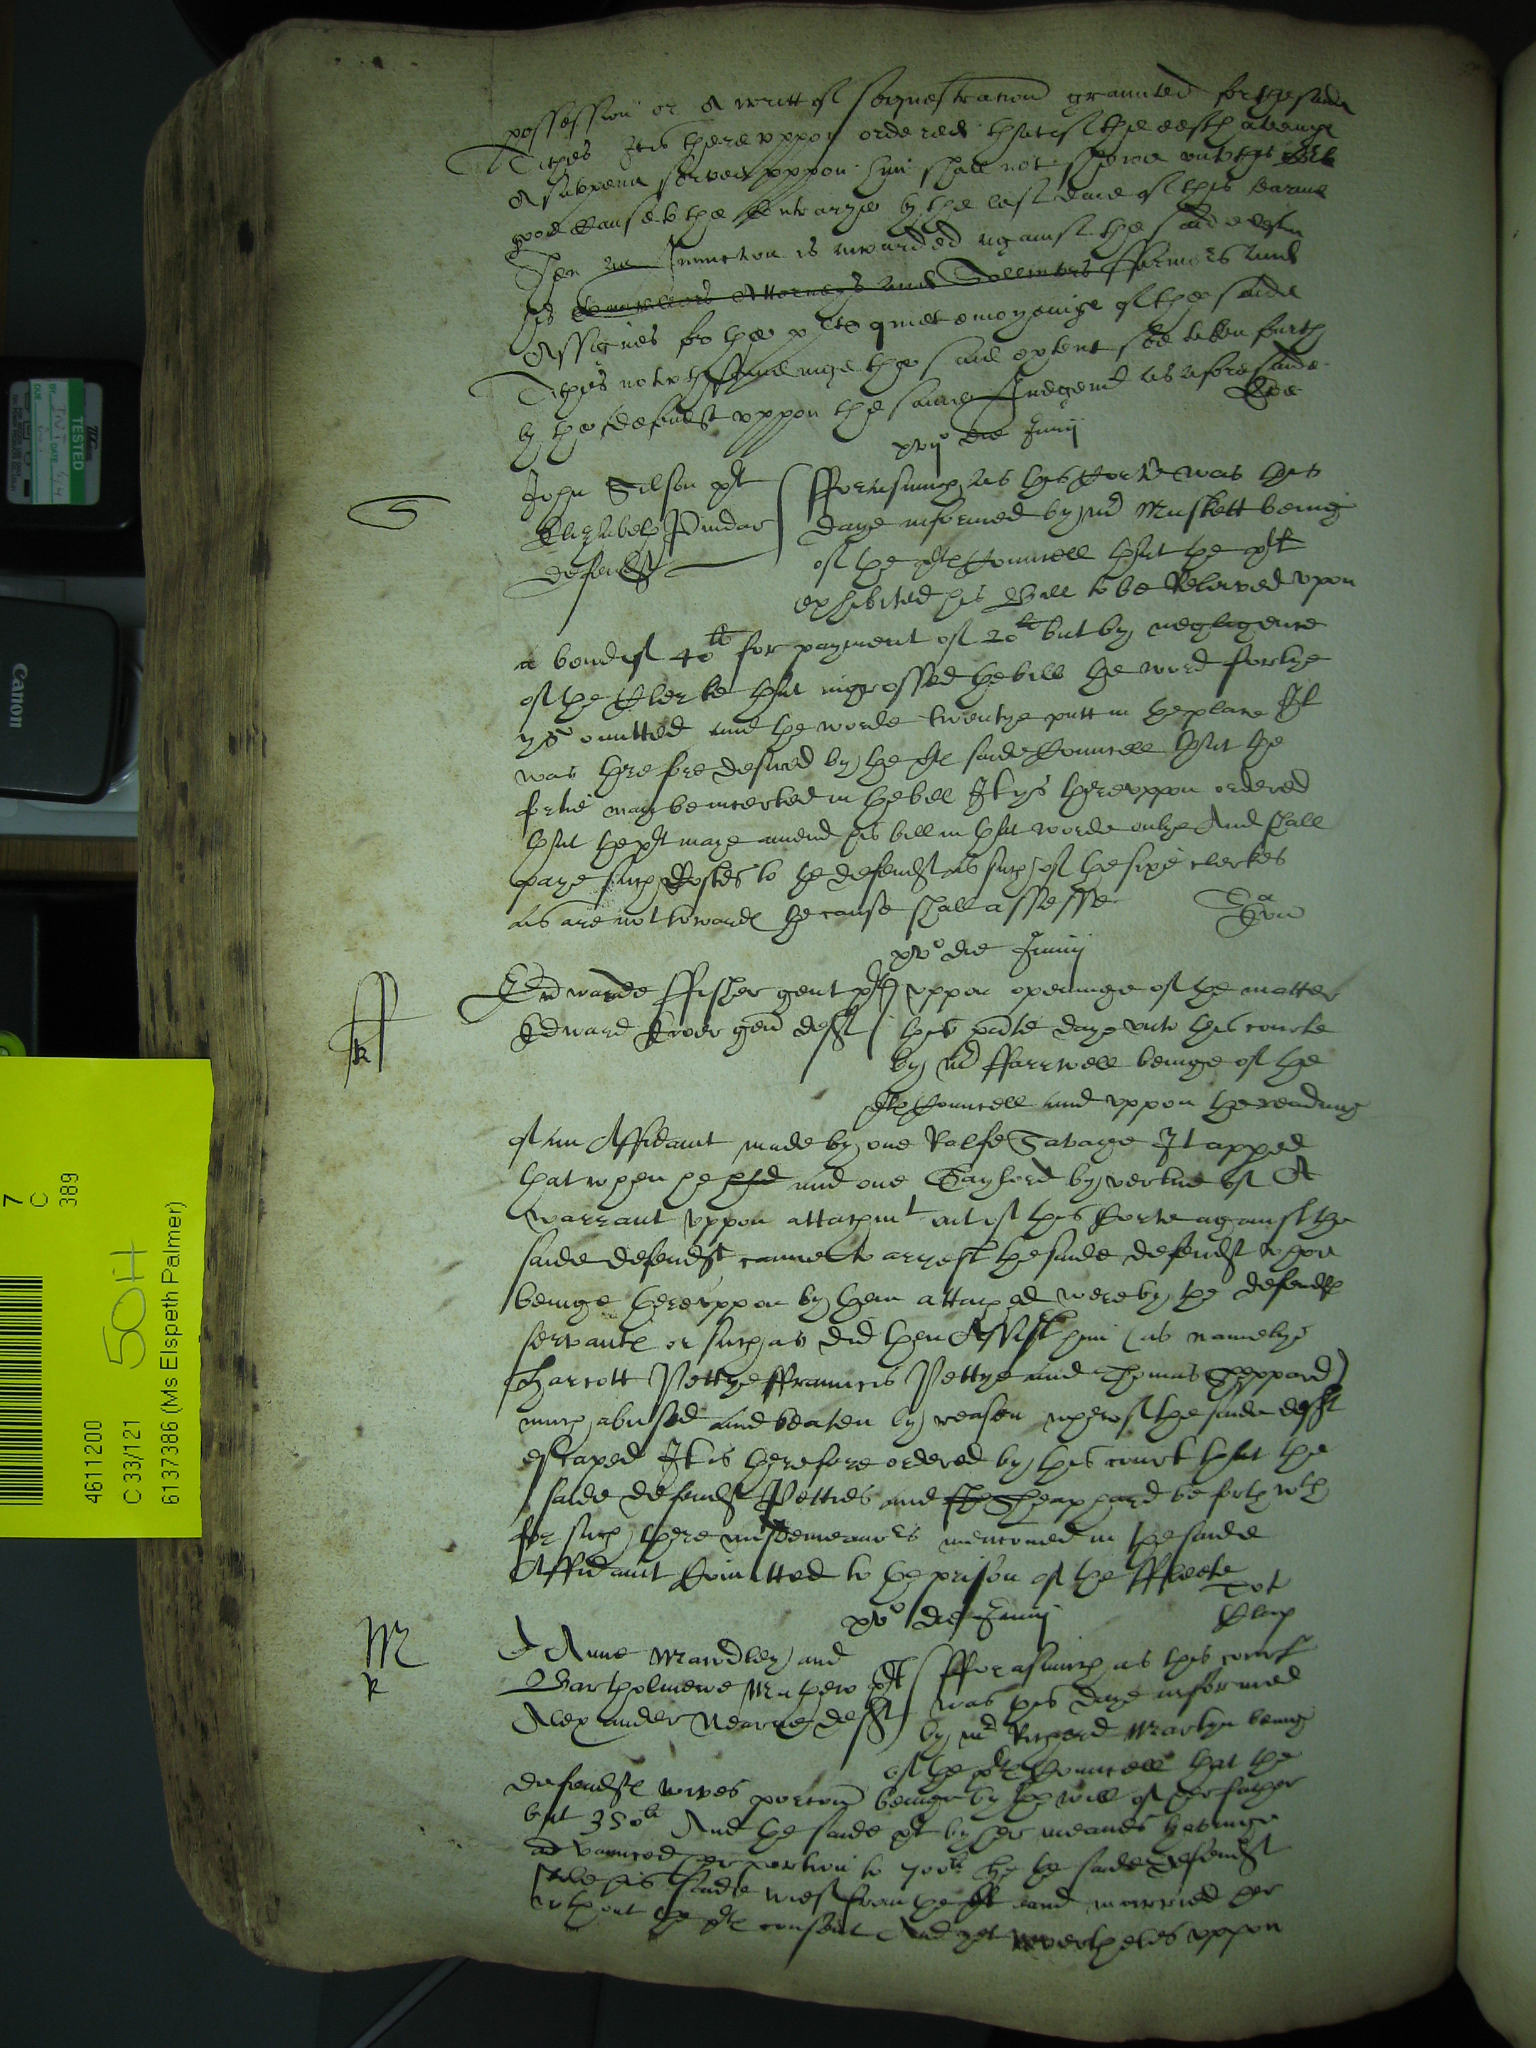 possession or A writt of sequestracion graunted for the said
Tithes It is thereuppon ordered that if the defts havinge
A subpena served uppon him shall not showe unto this Co
good cause to the contrarye by the last daie of this tearme
Then an Iniuncion is awarded against the said defts
his Councellors Attorneys and Sollicitors ffarmors and
Assignes for the plts quiet enioyeinge of the saide
Tithes notwthstandinge the said extent soe taken furth
by the defendt uppon the same Iudgemt as aforesaide
xvijo die Junij
S
John Silson plt
Elizabeth Pindar
defendt
fforasmuch as this Corte was this
daye informed by Mr Muskett being
of the plts Councell that the plt
exhibited his Bill to be Releived upon
a bond of 40li for payment of 20li but by neglegence
of the Clerke that ingrossed the bill the word fortye
ys omitted and the worde twentye putt in the place It
was therefore desired by the plts saide Councell that the
fortie may be incerted in the bill It ys thereuppon ordered
that the plt maye amend his bill in that worde onlye And shall
paye such Costes to the defendt as such of the sixe clerkes
as are not towards the cause shall assesse
xvo die Junij
ff
R
Edwarde ffisher gent plt
Edward gen deft
uppon openinge of the matter
this pnte daye unto this courte
by Mr ffarrwell beinge of the
plts Councell and uppon the readinge
of an Affidavit made by one Ralfe Savage It apped
that when he and one by vertue of A
warrant uppon attachmt out of this Corte against the
saide defendt came to arrest the saide defendt whoe
beinge thereuppon by them attached were by the defendts
servants or such as did then Assist him (as namelye
Harcott Pettye ffrauncis Pettye and Thomas Sheppard)
much abused and beaten by reason wherof the saide deft
escaped It is therefore ordered by this court that the
saide defendt Petties and Sheaphard be forthwth
for such there misdemeanors mencioned in the saide
Affidavit Comitted to the prison of the ffleete
xvo die Junij
M
R
Anne Mawdley and
Bartholmewe Mathew plts
Alexander Nearne deft
fforasmuch as this court
was this daye informed
by Mr Richard Martyn being
of the plts Councell that the
defendts wives porcion beinge by the will of her father
but 350li And the saide plt by her meanes havinge
advanced her portion to 700li the saide defendt
his saide wief from the plt and married her
wthout the plts consent And yet nevertheles uppon
TESTED
Canon
7
C
389
50H
4611200
C 33/121
6137386 (Ms Elspeth Palmer)